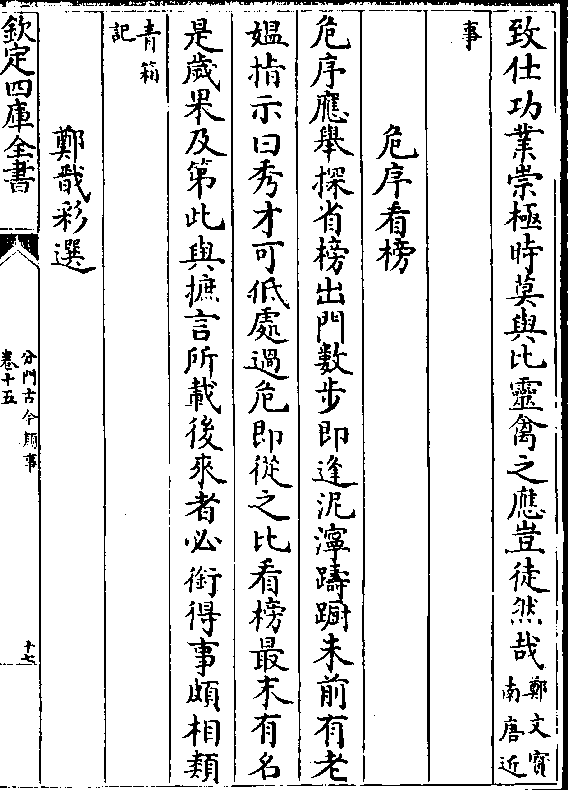 致仕功業崇極時莫與比靈禽之應豈徒然哉鄭文寳南唐近
事
危序看榜
危序應舉探省榜出門數步即逢泥濘躊躕未前有老
媪指示曰秀才可低處過危即從之比看榜最末有名
是歲果及第此與摭言所載後來者必銜得事頗相類
青箱記
鄭戩彩選
欽定四庫全書
分門古今類事
卷十五
十七